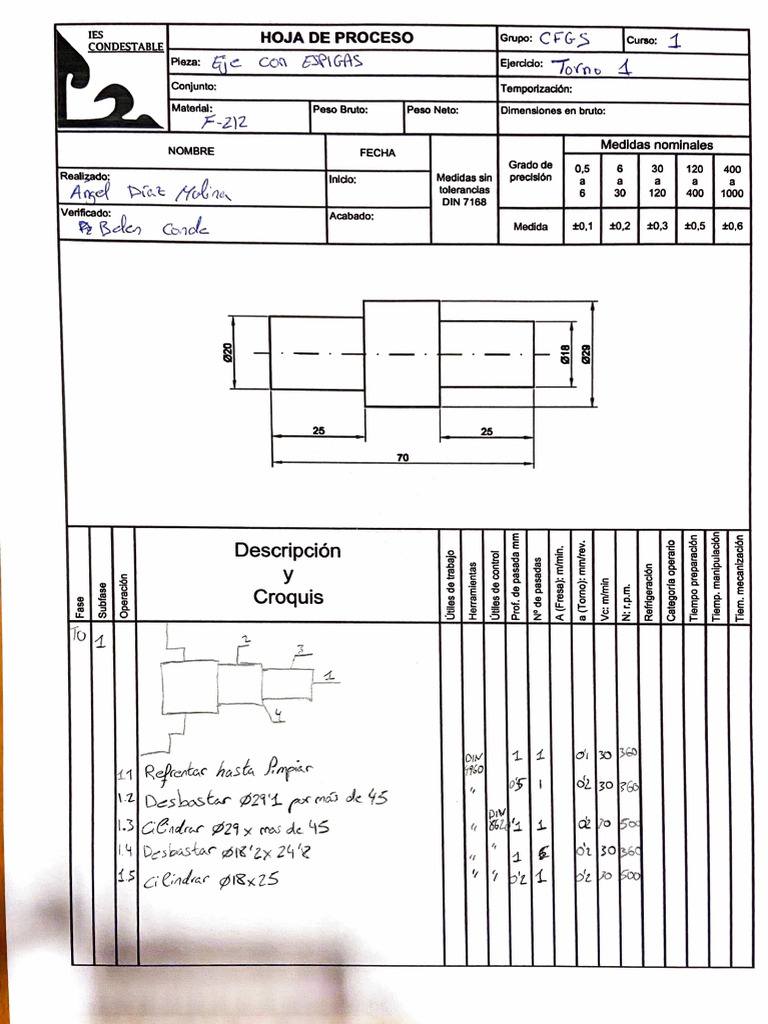 IES
CONDESTABLE
HOJA DE PROCESO
Grupo: CFGS
Curso: 1
Pieza: Eje con ESPIGAS
Ejercicio: Torno 1
Conjunto:
Temporización:
Material: F-212
Peso Bruto:
Peso Neto:
Dimensiones en bruto:
NOMBRE
FECHA
Medidas sin
tolerancias
DIN 7168
Grado de
precisión
Medidas nominales
0,5 a 6
6 a 30
30 a 120
120 a 400
400 a 1000
Realizado: Angel Díaz Molina
Inicio:
Verificado: Belen Conde
Acabado:
Medida
±0,1
±0,2
±0,3
±0,5
±0,6
Ø20
Ø18
Ø29
25
25
70
Fase
Subfase
Operación
Descripción
y
Croquis
Útiles de trabajo
Herramientas
Útiles de control
Prof. de pasada mm
Nº de pasadas
A (Fresa): m/min.
a (Torno): mm/rev.
Vc: m/min
N: r.p.m.
Refrigeración
Categoría operario
Tiempo preparación
Tiemp. manipulación
Tiem. mecanización
TO 1
2
3
1
4
1.1 Refrentar hasta limpiar DIN 4960 1 1 0'1 30 360
1.2 Desbastar Ø29'1 por más de 45 " 0'5 1 0'2 30 360
1.3 Cilindrar Ø29 x mas de 45 " DIN 862 0'1 1 0'2 70 500
1.4 Desbastar Ø18'2 x 24'8 " " 1 0'2 30 360
1.5 Cilindrar Ø18x25 " " 0'2 1 0'2 70 500